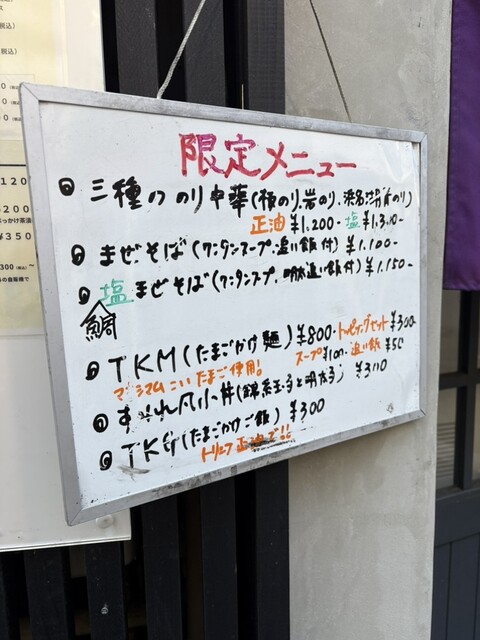 限定メニュー
三種ののり中華(板のり、岩のり、浜名湖青のり)
正油 ¥1,200- 塩 ¥1,300-
まぜそば(ワンタンスープ、追い飯付) ¥1,100-
塩まぜそば(ワンタンスープ、明太追い飯付) ¥1,150-
鯛
TKM(たまごかけ麺) ¥800- トッピングセット ¥300-
マキシマムこいたまご使用! スープ ¥100- 追い飯 ¥50
小丼(錦糸玉子と明太子) ¥300
TKG(たまごかけご飯) ¥300
トリュフ正油で!!
120
200
ぶっかけ茶漬
¥350
300(税込)~
税込)